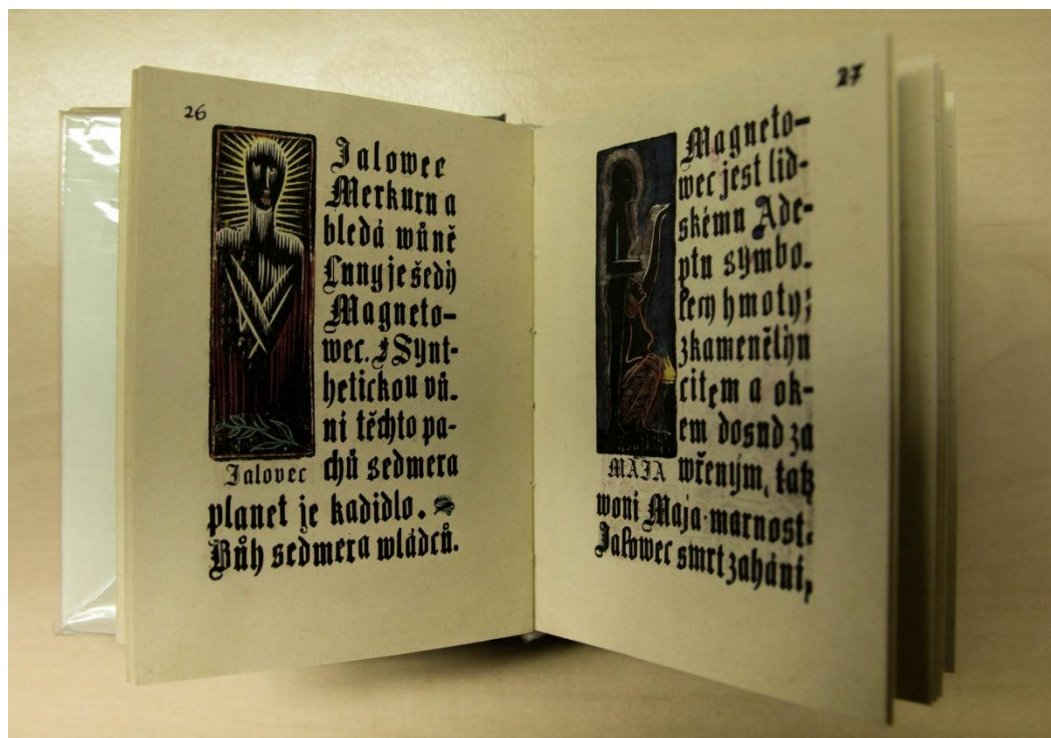 26
Jalowec
Merkuru a
bledá wůně
Luny je šedý
Magneto-
wec. Synt-
hetickou vů-
ni těchto pa-
chů sedmera
Jalovec
planet je kadidlo.
Bůh sedmera wládců.
27
Magneto-
wec jest lid-
skému Ade-
ptu symbo-
lem hmoty;
zkamenělým
citem a ok-
em dosud za
wřeným, tak
MÁJA
woní Maja marnost.
Jalowec smrt zahání,